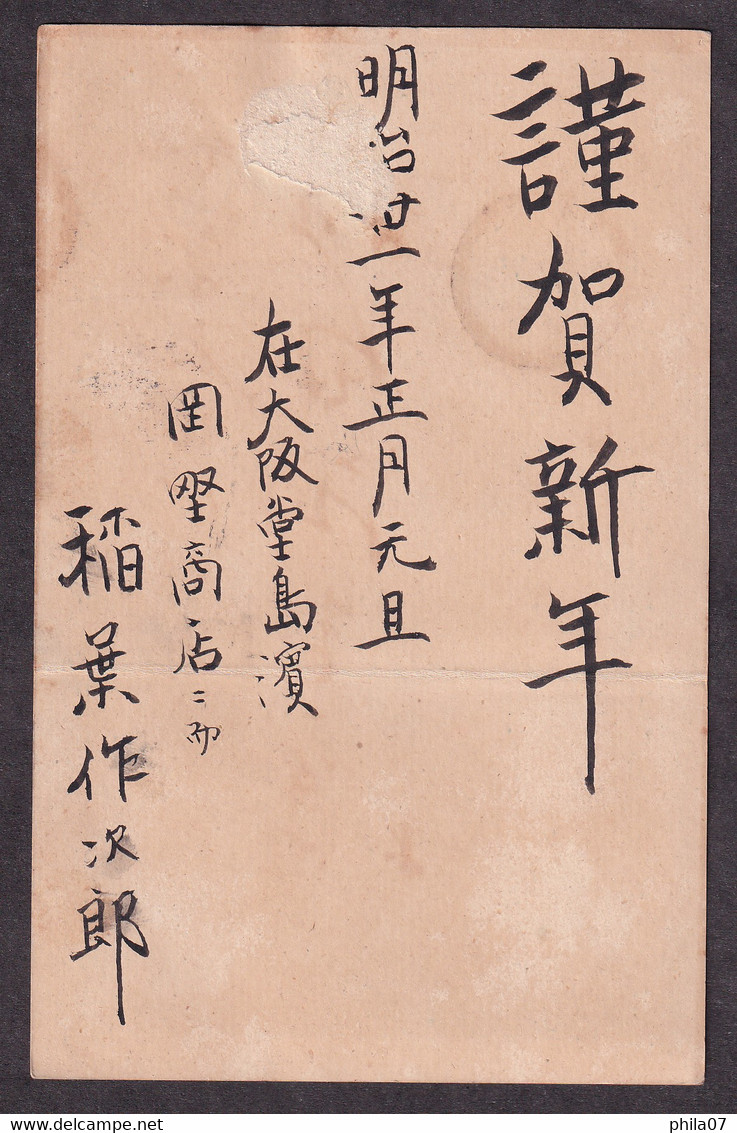 謹賀新年
明治廿一年正月元旦
在大阪堂島濱
岡野商店ニ而
稲葉作次郎
delcampe.net
phila07